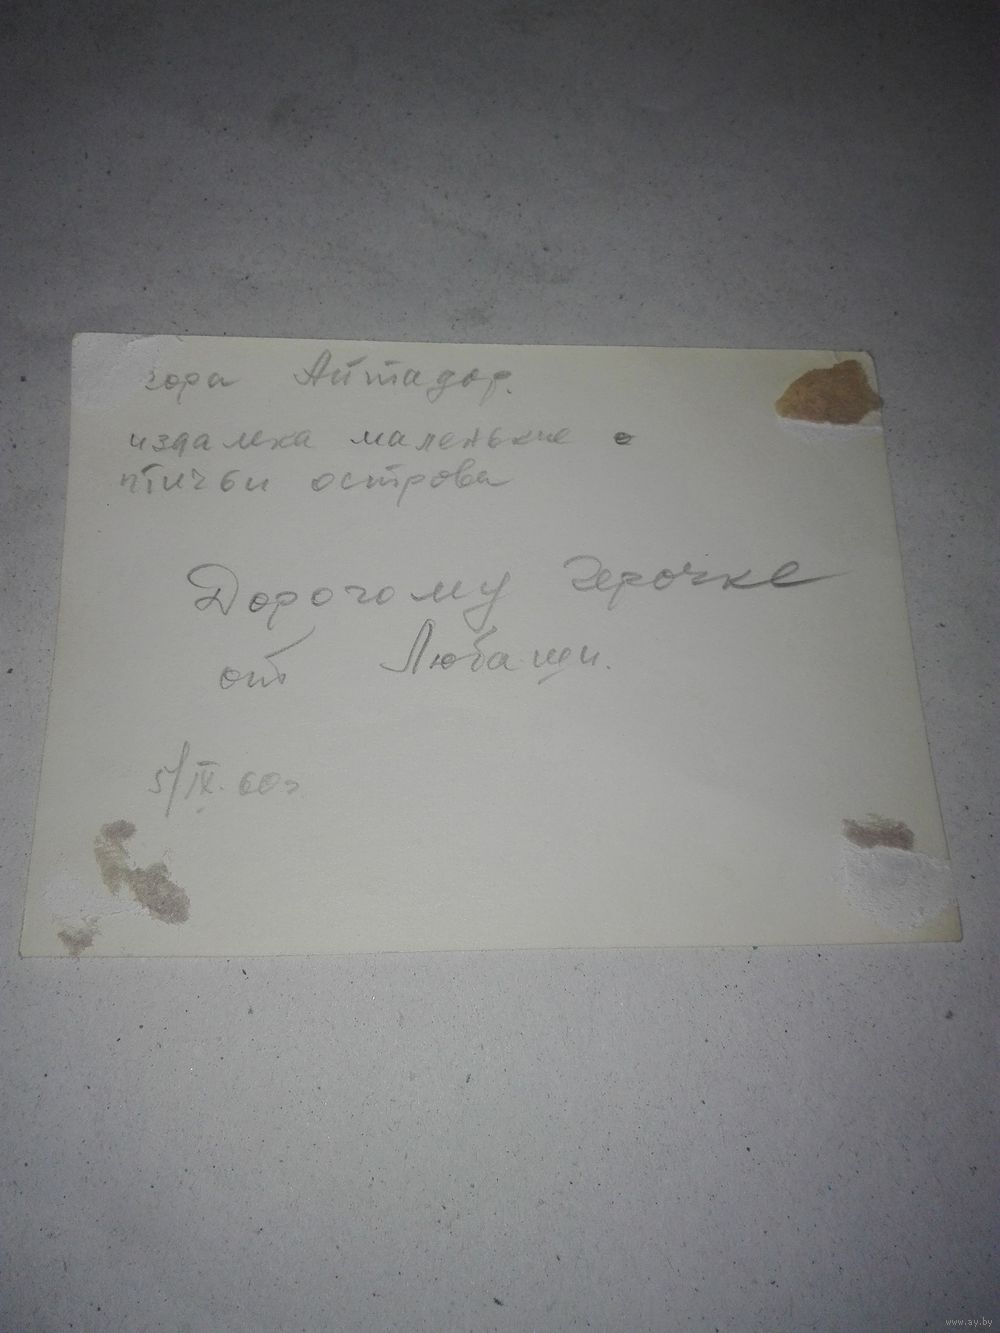 гора Айтадор.
издалека маленькие
птичьи острова
Дорогому Герочке
от Любаши.
5/IX. 60г
www.ay.by